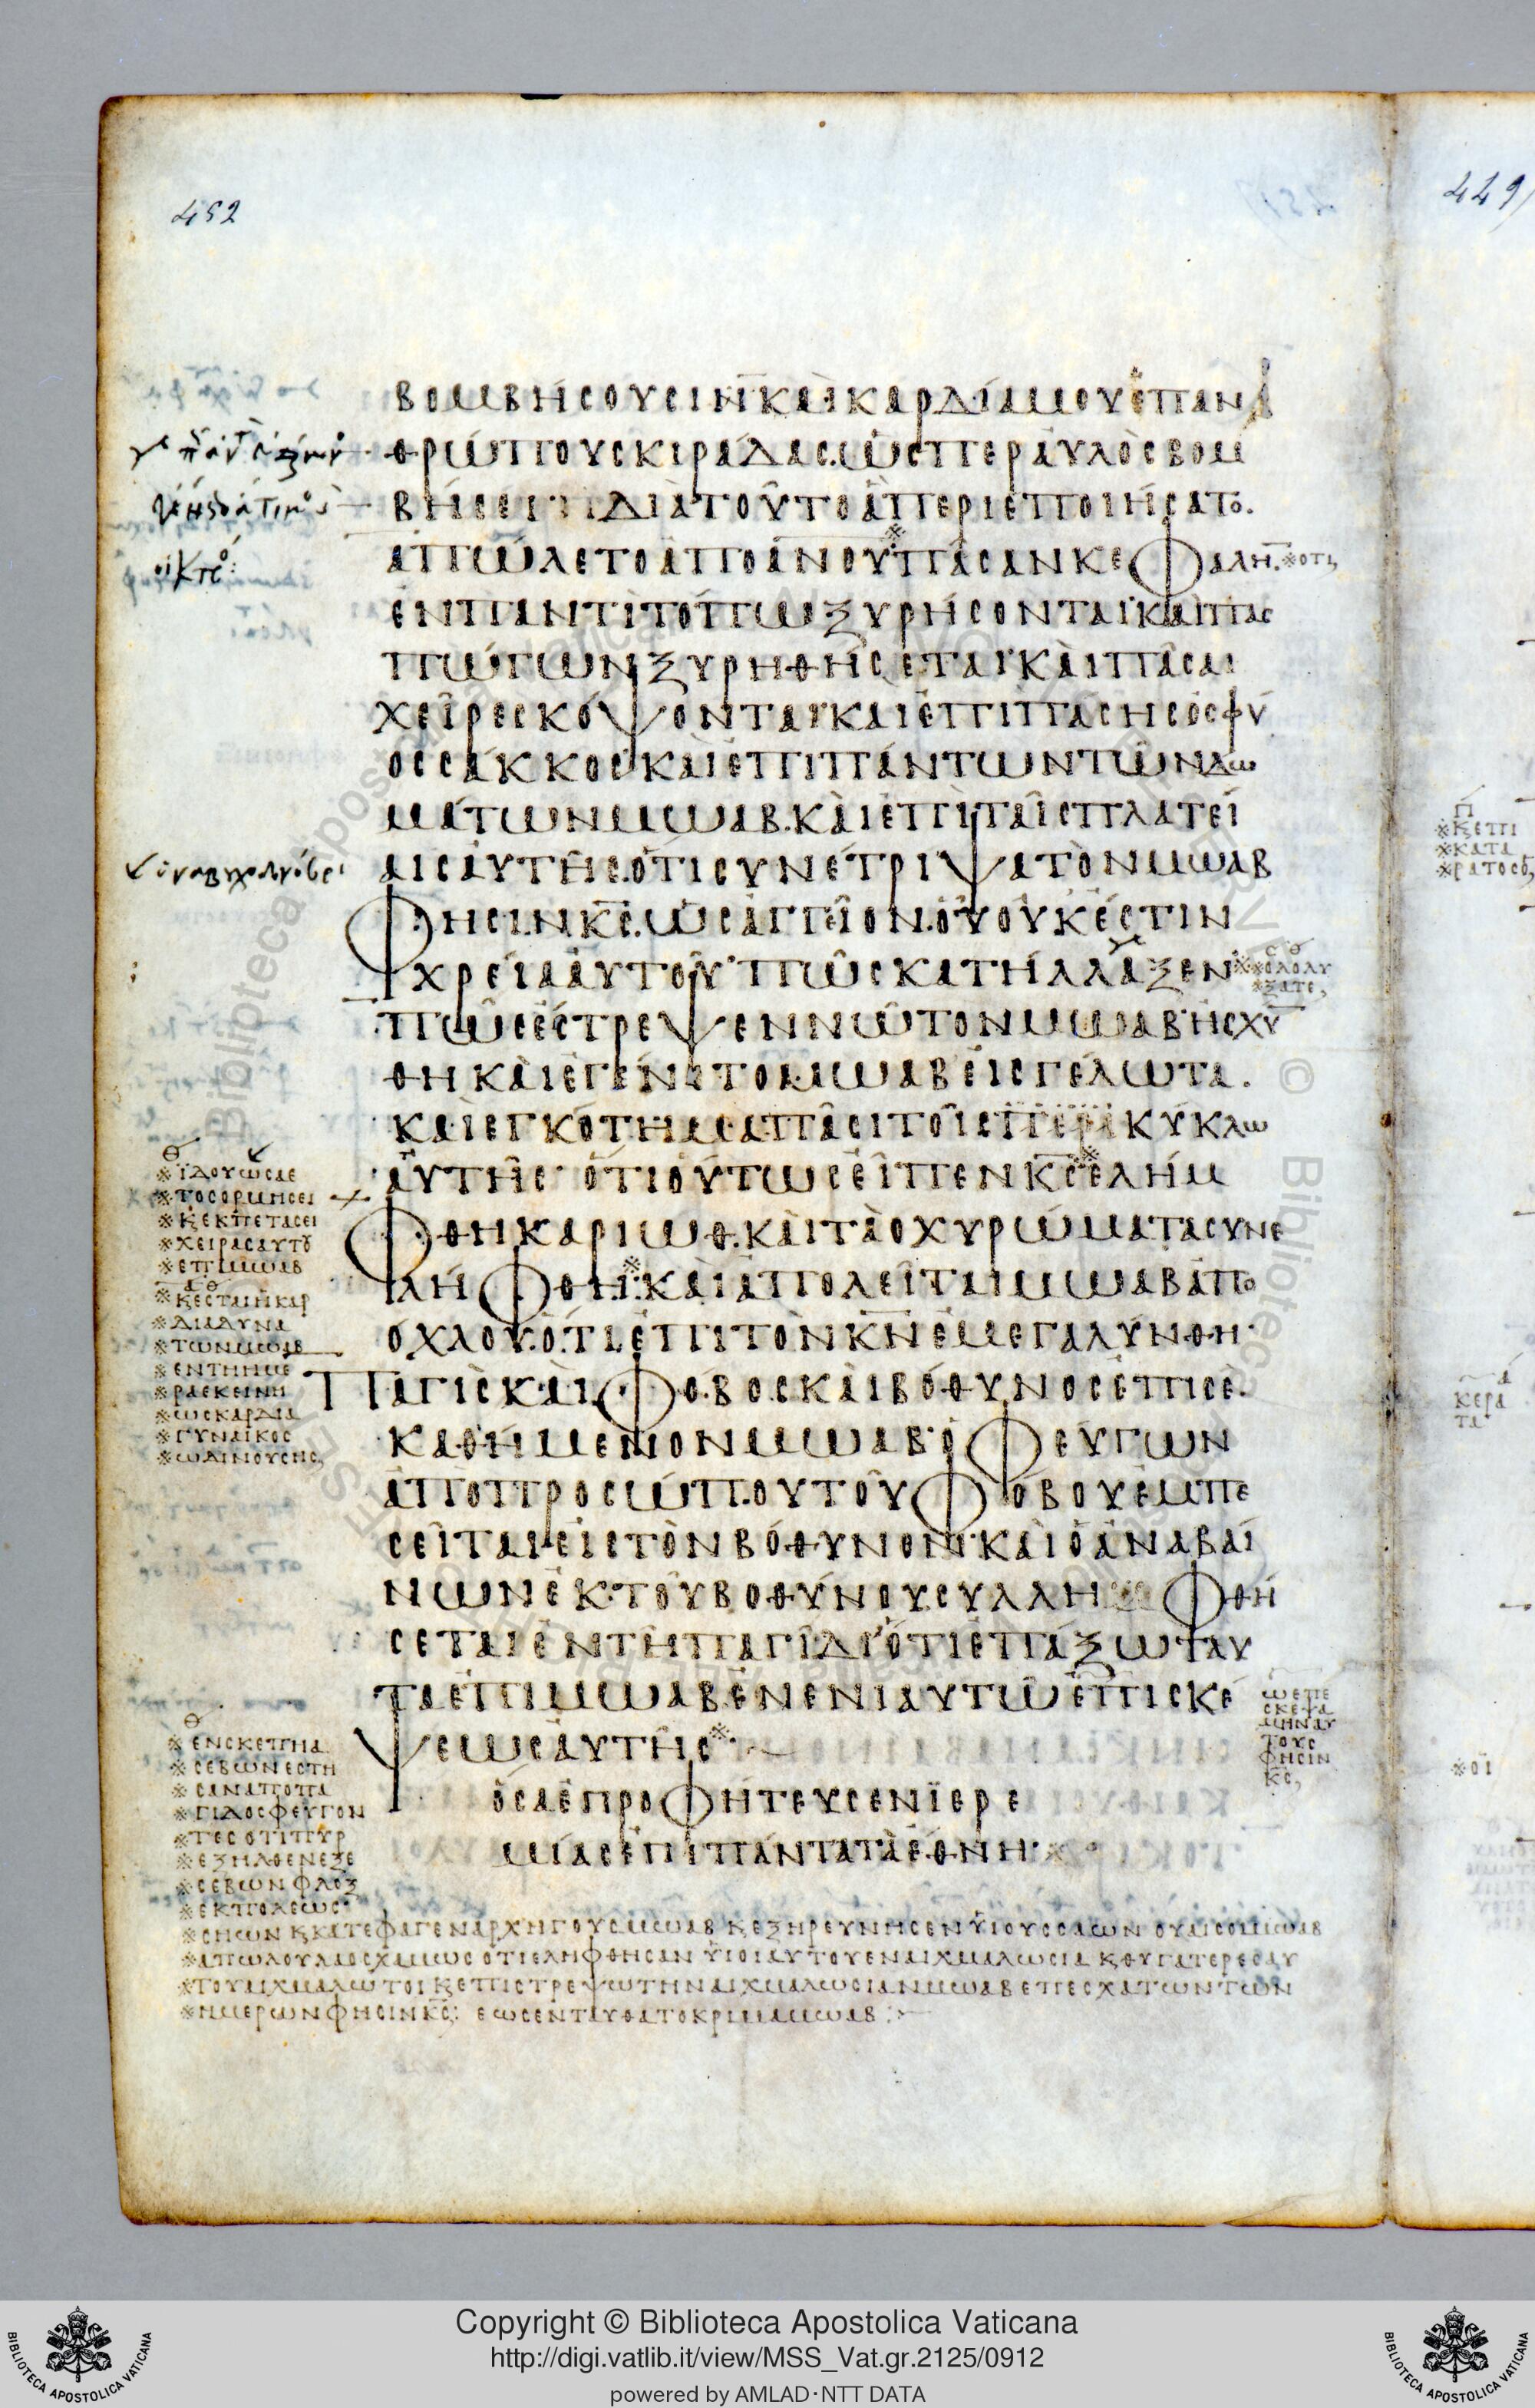 452
449
ΒΟΜΒΗΣΟΥΣΙΝ ΚΑΙ ΚΑΡΔΙΑ ΜΟΥ ΕΠ ΑΝ
ΘΡΩΠΟΥΣ ΚΙΡΑΔΑΣ. ΩΣΠΕΡ ΑΥΛΟΣ ΒΟΜ
ΒΗΣΕΙ ΔΙΑ ΤΟΥΤΟ Α ΠΕΡΙΕΠΟΙΗΣΑΤΟ.
ΑΠΩΛΕΤΟ ΑΠΟ ΑΝΟΥ ※ ΠΑΣΑΝ ΚΕΦΑΛΗ. ※ΟΤΙ
ΕΝ ΠΑΝΤΙ ΤΟΠΩ ΞΥΡΗΣΟΝΤΑΙ ΚΑΙ ΠΑΣ
ΠΩΓΩΝ ΞΥΡΗΘΗΣΕΤΑΙ ΚΑΙ ΠΑΣΑΙ
ΧΕΙΡΕΣ ΚΟΨΟΝΤΑΙ ΚΑΙ ΕΠΙ ΠΑΣΗΣ ΟΣΦΥ
ΟΣ ΣΑΚΚΟΣ ΚΑΙ ΕΠΙ ΠΑΝΤΩΝ ΤΩΝ ΔΩ
ΜΑΤΩΝ ΜΩΑΒ. ΚΑΙ ΕΠΙ ΤΑΙΣ ΠΛΑΤΕΙ
ΑΙΣ ΑΥΤΗΣ. ΟΤΙ ΣΥΝΕΤΡΙΨΑ ΤΟΝ ΜΩΑΒ
ΦΗΣΙΝ ΚΣ. ΩΣ ΑΓΓΕΙΟΝ. ΟΥ ΟΥΚ ΕΣΤΙΝ
ΧΡΕΙΑ ΑΥΤΟΥ ΠΩΣ ΚΑΤΗΛΛΑΞΕΝ
※ΟΛΟΛΥ
※ΞΑΤΕ,
ΠΩΣ ΕΣΤΡΕΨΕΝ ΝΩΤΟΝ ΜΩΑΒ ΗΣΧΥ
ΘΗ ΚΑΙ ΕΓΕΝΕΤΟ ΜΩΑΒ ΕΙΣ ΓΕΛΩΤΑ.
ΚΑΙ ΕΓΚΟΤΗΜΑ ΠΑΣΙ ΤΟΙΣ ΠΕΡΙ ΚΥΚΛΩ
ΑΥΤΗΣ ΟΤΙ ΟΥΤΩΣ ΕΙΠΕΝ ΚΣ ※ ΕΛΗΜ
ΦΘΗ ΚΑΡΙΩΘ. ΚΑΙ ΤΑ ΟΧΥΡΩΜΑΤΑ ΣΥΝΕ
ΛΗΦΘΗ ※ ΚΑΙ ΑΠΟΛΕΙΤΑΙ ΜΩΑΒ ΑΠΟ
ΟΧΛΟΥ. ΟΤΙ ΕΠΙ ΤΟΝ ΚΝ ΕΜΕΓΑΛΥΝΘΗ
ΠΑΓΙΣ ΚΑΙ ΦΟΒΟΣ ΚΑΙ ΒΟΘΥΝΟΣ ΕΠΙ ΣΕ.
ΚΑΘΗΜΕΝΟΝ ΜΩΑΒ Ο ΦΕΥΓΩΝ
ΑΠΟ ΠΡΟΣΩΠΟΥ ΤΟΥ ΦΟΒΟΥ ΕΜΠΕ
ΣΕΙΤΑΙ ΕΙΣ ΤΟΝ ΒΟΘΥΝΟΝ ΚΑΙ Ο ΑΝΑΒΑΙ
ΝΩΝ ΕΚ ΤΟΥ ΒΟΘΥΝΟΥ ΣΥΛΛΗΦΘΗ
ΣΕΤΑΙ ΕΝ ΤΗ ΠΑΓΙΔΙ ΟΤΙ ΕΠΑΞΩ ΤΑΥ
ΤΑ ΕΠΙ ΜΩΑΒ ΕΝ ΕΝΙΑΥΤΩ ΕΠΙΣΚΕ
ΨΕΩΣ ΑΥΤΗΣ ※
ΟΣΑ ΕΠΡΟΦΗΤΕΥΣΕΝ ΙΕΡΕ
ΜΙΑΣ ΕΠΙ ΠΑΝΤΑ ΤΑ ΕΘΝΗ
※ΙΔΟΥ ΩΣ ΑΕ
※ΤΟΣ ΟΡΜΗΣΕΙ
※Κ ΕΚΠΕΤΑΣΕΙ
※ΧΕΙΡΑΣ ΑΥΤΟΥ
※ΕΠΙ ΜΩΑΒ
※Κ ΕΣΤΑΙ Η ΚΑΡ
※ΔΙΑ ΔΥΝΑ
※ΤΩΝ ΜΩΑΒ
※ΕΝ ΤΗ ΗΜΕ
※ΡΑ ΕΚΕΙΝΗ
※ΩΣ ΚΑΡΔΙΑ
※ΓΥΝΑΙΚΟΣ
※ΩΔΙΝΟΥΣΗΣ,
ΩΕΠΕ
ΣΚΕΨΑ
ΜΗΝ ΑΥ
ΤΟΥΣ
ΦΗΣΙΝ
ΚΣ,
※ΕΝ ΣΚΕΠΗ Α
※ΣΕΒΩΝ ΕΣΤΗ
※ΣΑΝ ΑΠΟ ΠΑ
※ΓΙΔΟΣ ΦΕΥΓΟΝ
※ΤΕΣ ΟΤΙ ΠΥΡ
※ΕΞΗΛΘΕΝ ΕΞ Ε
※ΣΕΒΩΝ ΦΛΟΞ
※ΕΚ ΠΟΛΕΩΣ
※ΣΗΩΝ Κ ΚΑΤΕΦΑΓΕΝ ΑΡΧΗΓΟΥΣ ΜΩΑΒ Κ ΕΞΗΡΕΥΝΗΣΕΝ ΥΙΟΥΣ ΣΑΩΝ ΟΥΑΙ ΣΟΙ ΜΩΑΒ
※ΑΠΩΛΟΥ ΛΑΟΣ ΧΑΜΩΣ ΟΤΙ ΕΛΗΦΘΗΣΑΝ ΥΙΟΙ ΑΥΤΟΥ ΕΝ ΑΙΧΜΑΛΩΣΙΑ Κ ΘΥΓΑΤΕΡΕΣ ΑΥ
※ΤΟΥ ΑΙΧΜΑΛΩΤΟΙ Κ ΕΠΙΣΤΡΕΨΩ ΤΗΝ ΑΙΧΜΑΛΩΣΙΑΝ ΜΩΑΒ ΕΠ ΕΣΧΑΤΩΝ ΤΩΝ
※ΗΜΕΡΩΝ ΦΗΣΙΝ ΚΣ: ΕΩΣ ΕΝΤΑΥΘΑ ΤΟ ΚΡΙΜΑ ΜΩΑΒ
※Κ ΕΠΙ
※ΚΑΤΑ
※ΡΑΤΟΣ
ΚΕΡΑ
ΤΑ
※ΟΙ
Copyright © Biblioteca Apostolica Vaticana
http://digi.vatlib.it/view/MSS_Vat.gr.2125/0912
powered by AMLAD·NTT DATA
BIBLIOTECA APOSTOLICA VATICANA
BIBLIOTECA APOSTOLICA VATICANA